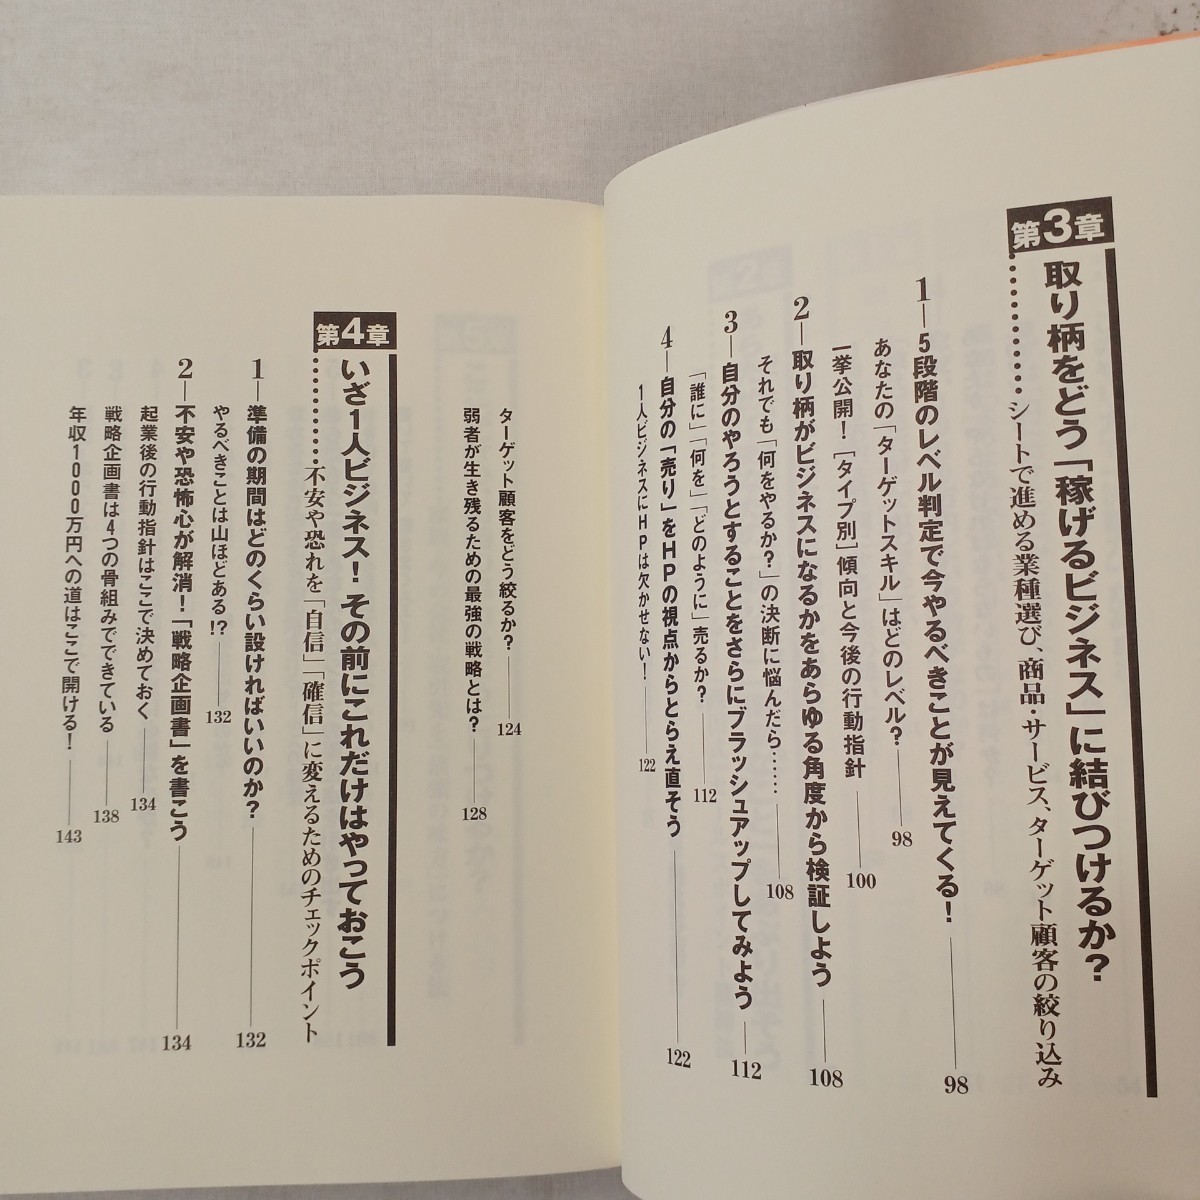 第3章
取り柄をどう「稼げるビジネス」に結びつけるか？
………シートで進める業種選び、商品・サービス、ターゲット顧客の絞り込み
1―5段階のレベル判定で今やるべきことが見えてくる！―98
あなたの「ターゲットスキル」はどのレベル？―98
一挙公開！［タイプ別］傾向と今後の行動指針―100
2―取り柄がビジネスになるかをあらゆる角度から検証しよう―108
それでも「何をやるか？」の決断に悩んだら……―108
3―自分のやろうとすることをさらにブラッシュアップしてみよう―112
「誰に」「何を」「どのように」売るか？―112
4―自分の「売り」をHPの視点からとらえ直そう―122
1人ビジネスにHPは欠かせない！―122
ターゲット顧客をどう絞るか？―124
弱者が生き残るための最強の戦略とは？―128
第4章
いざ1人ビジネス！その前にこれだけはやっておこう
………不安や恐れを「自信」「確信」に変えるためのチェックポイント
1―準備の期間はどのくらい設ければいいのか？―132
やるべきことは山ほどある！?―132
2―不安や恐怖心が解消！「戦略企画書」を書こう―134
起業後の行動指針はここで決めておく―134
戦略企画書は4つの骨組みでできている―138
年収1000万円への道はここで開ける！―143